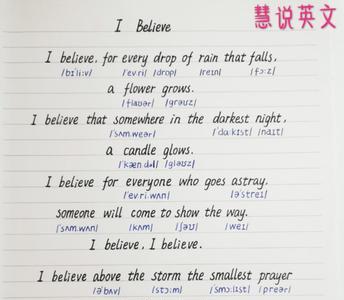 慧说英文
I Believe
I believe, for every drop of rain that falls,
/bɪ'li:v/ /'ev.ri/ /drop/ /reɪn/ /fɔ:z/
a flower grows.
/flaʊər/ /grəʊz/
I believe that somewhere in the darkest night,
/'sʌm.weər/ /'da:kɪst/ /naɪt/
a candle glows.
/'kæn.dəl/ /gləʊz/
I believe for everyone who goes astray,
/'ev.ri.wʌn/ /ə'streɪ/
someone will come to show the way.
/'sʌm.wʌn/ /kʌm/ /ʃəʊ/ /weɪ/
I believe, I believe.
I believe above the storm the smallest prayer
/ə'bʌv/ /stɔ:m/ /'smɔ:lɪst/ /preər/